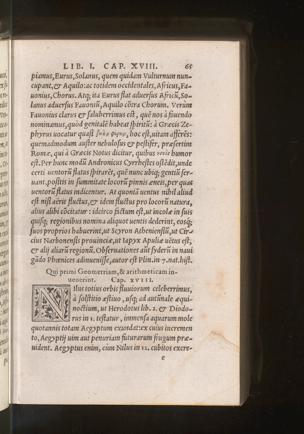 LIB. I. CAP. XVIII. 65
pianus, Eurus, Solanus, quem quidam Vulturnum nun-
cupant, & Aquilo: ac totidem occidentales, Africus, Fa-
uonius, Chorus. Atq; ita Eurus flat aduersus Africũ, So-
lanus aduersus Fauoniũ, Aquilo cõtra Chorum. Verùm
Fauonius clarus & saluberrimus est, quẽ nos à fiuendo
nominamus, quòd genitale habeat spiritũ: à Græcis Ze-
phyrus uocatur quasi hoc est, uitam afferẽs:
quemadmodum auster nebulosus & pestifer, præsertim
Romæ, qui à Græcis Notus dicitur, quibus humor
est. Per hunc modũ Andronicus Cyrrhestes ostẽdit, unde
certi uentorũ flatus spirarẽt, quẽ nunc ubiq; gentiũ ser-
uant, positis in summitate locorũ pinnis æneis, per quas
uentorũ flatus indicentur. At quoniã uentus nihil aliud
est nisi aëris fluctus, & idem fluctus pro locorũ natura,
alius alibi cõcitatur: idcirco fictum est, ut incolæ in suis
quisq; regionibus nomina aliquot uentis dederint, eosq;
suos proprios habuerint, ut Scyron Atheniensiũ, ut Cir-
cius Narbonensis prouinciæ, ut Iapyx Apuliæ uẽtus est,
& alij aliarũ regionũ. Obseruationes aũt syderũ in naui
gãdo Phœnices adinuenisse, autor est Plin. in 7. nat. hist.
Qui primi Geometriam, & arithmeticam in-
uenerint. Cap. XVIII.
NIlus totius orbis fluuiorum celeberrimus,
à solstitio æstiuo, usq; ad autũnale æqui-
noctium, ut Herodotus lib. 2. & Diodo-
rus in 1. testatur, immensa aquarum mole
quotannis totam Aegyptum exundat: ex cuius incremen
to, Aegyptij uim aut penuriam futurarum frugum præ-
uident. Aegyptus enim, cùm Nilus in 12. cubitos excre-
e